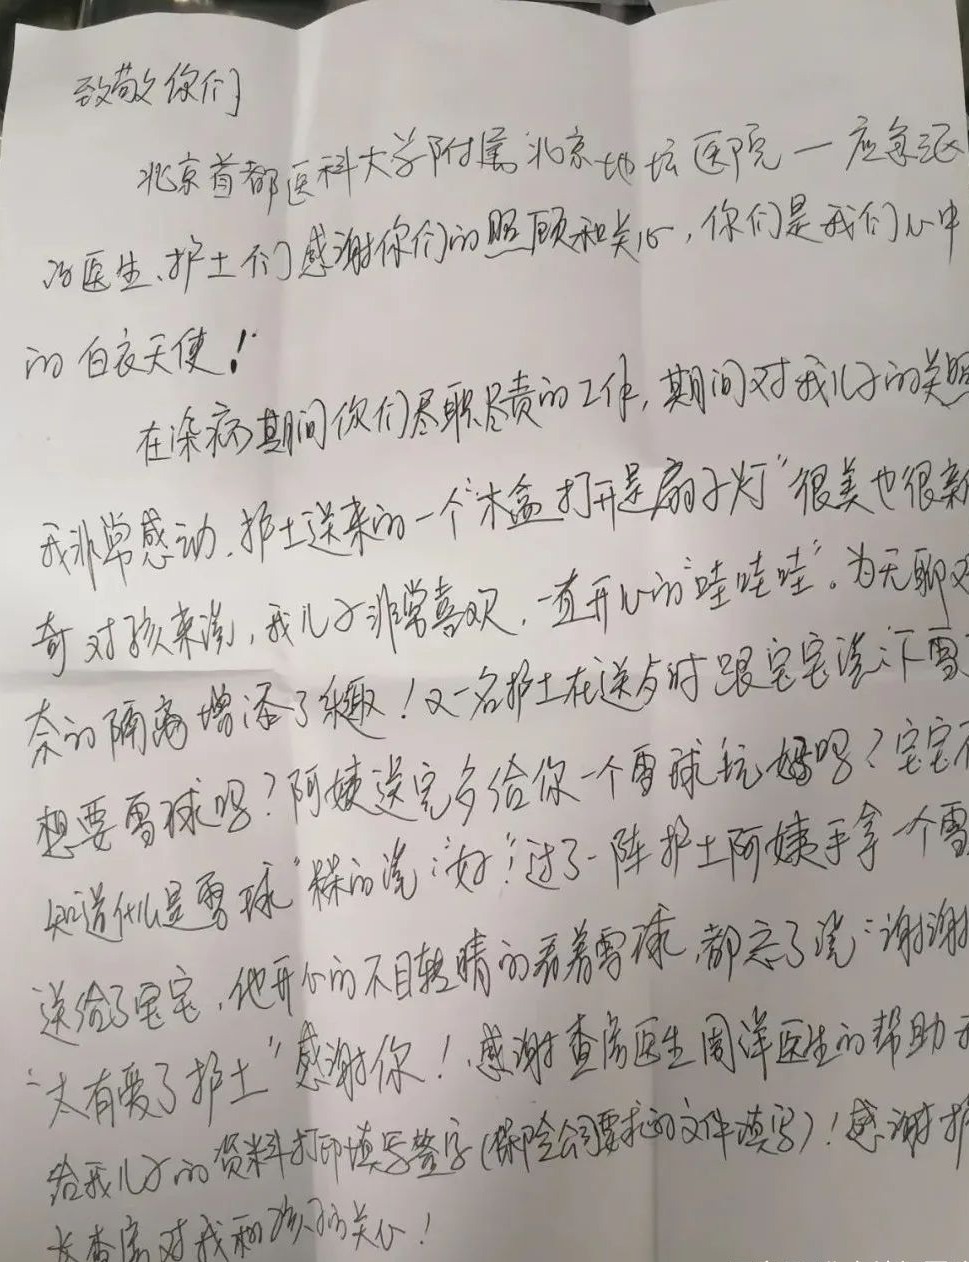 致敬你们
北京首都医科大学附属北京地坛医院一应急
医生、护士们感谢你们的照顾和关心,你们是我们心中
的白衣天使!
在染病期间你们尽职尽责的工作,期间对我儿子的关照
我非常感动.护士送来的一个"木盒打开是扇子灯"很美也很新
奇对孩来说,我儿子非常喜欢,一直开心的"哇哇哇"。为无聊
奈的隔离增添了乐趣!又一名护士在送 时跟宝宝说:下雪
想要雪球吗?阿姨送完 给你一个雪球玩 吗?宝宝不
知道什么是雪球" 的说:"好"!过了一阵护士阿姨手拿一个雪
送给了宝宝,他开心的不目转睛的看着雪球,都忘了说:谢谢
"太有爱了护士"感谢你!感谢查房医生周洋医生的帮助
给我儿子的资料打印填写签字(保险公司要求的文件填写)!感谢护
长查房对我和孩子的关心!